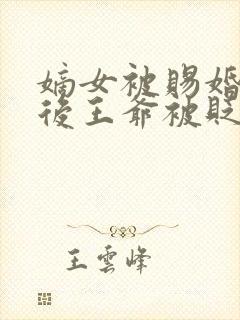 嫡女被賜婚
後王爺被貶
王雲峰